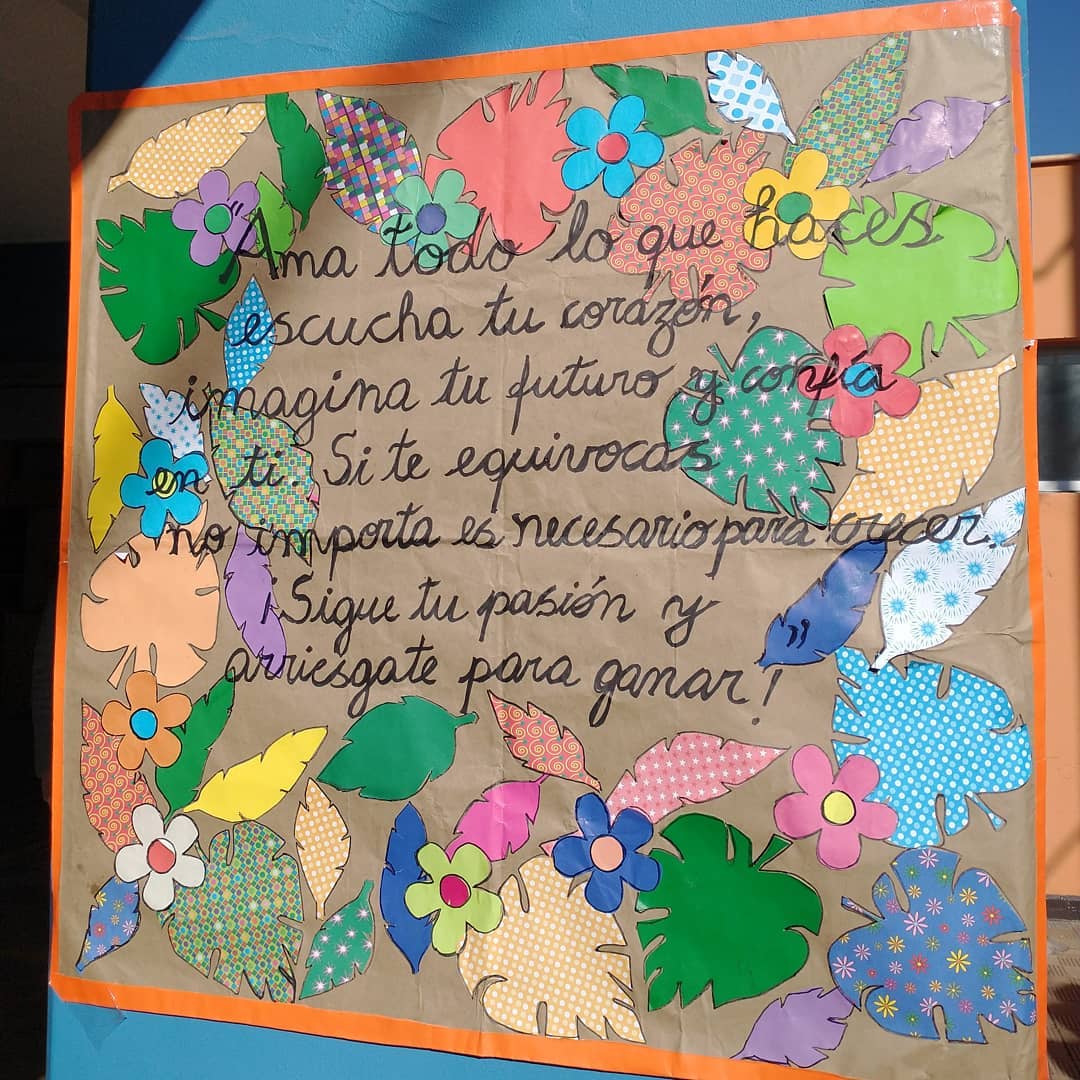 "Ama todo lo que haces
escucha tu corazón,
imagina tu futuro y confía
en ti. Si te equivocas
no importa es necesario para crecer.
¡Sigue tu pasión y "
arriesgate para ganar!